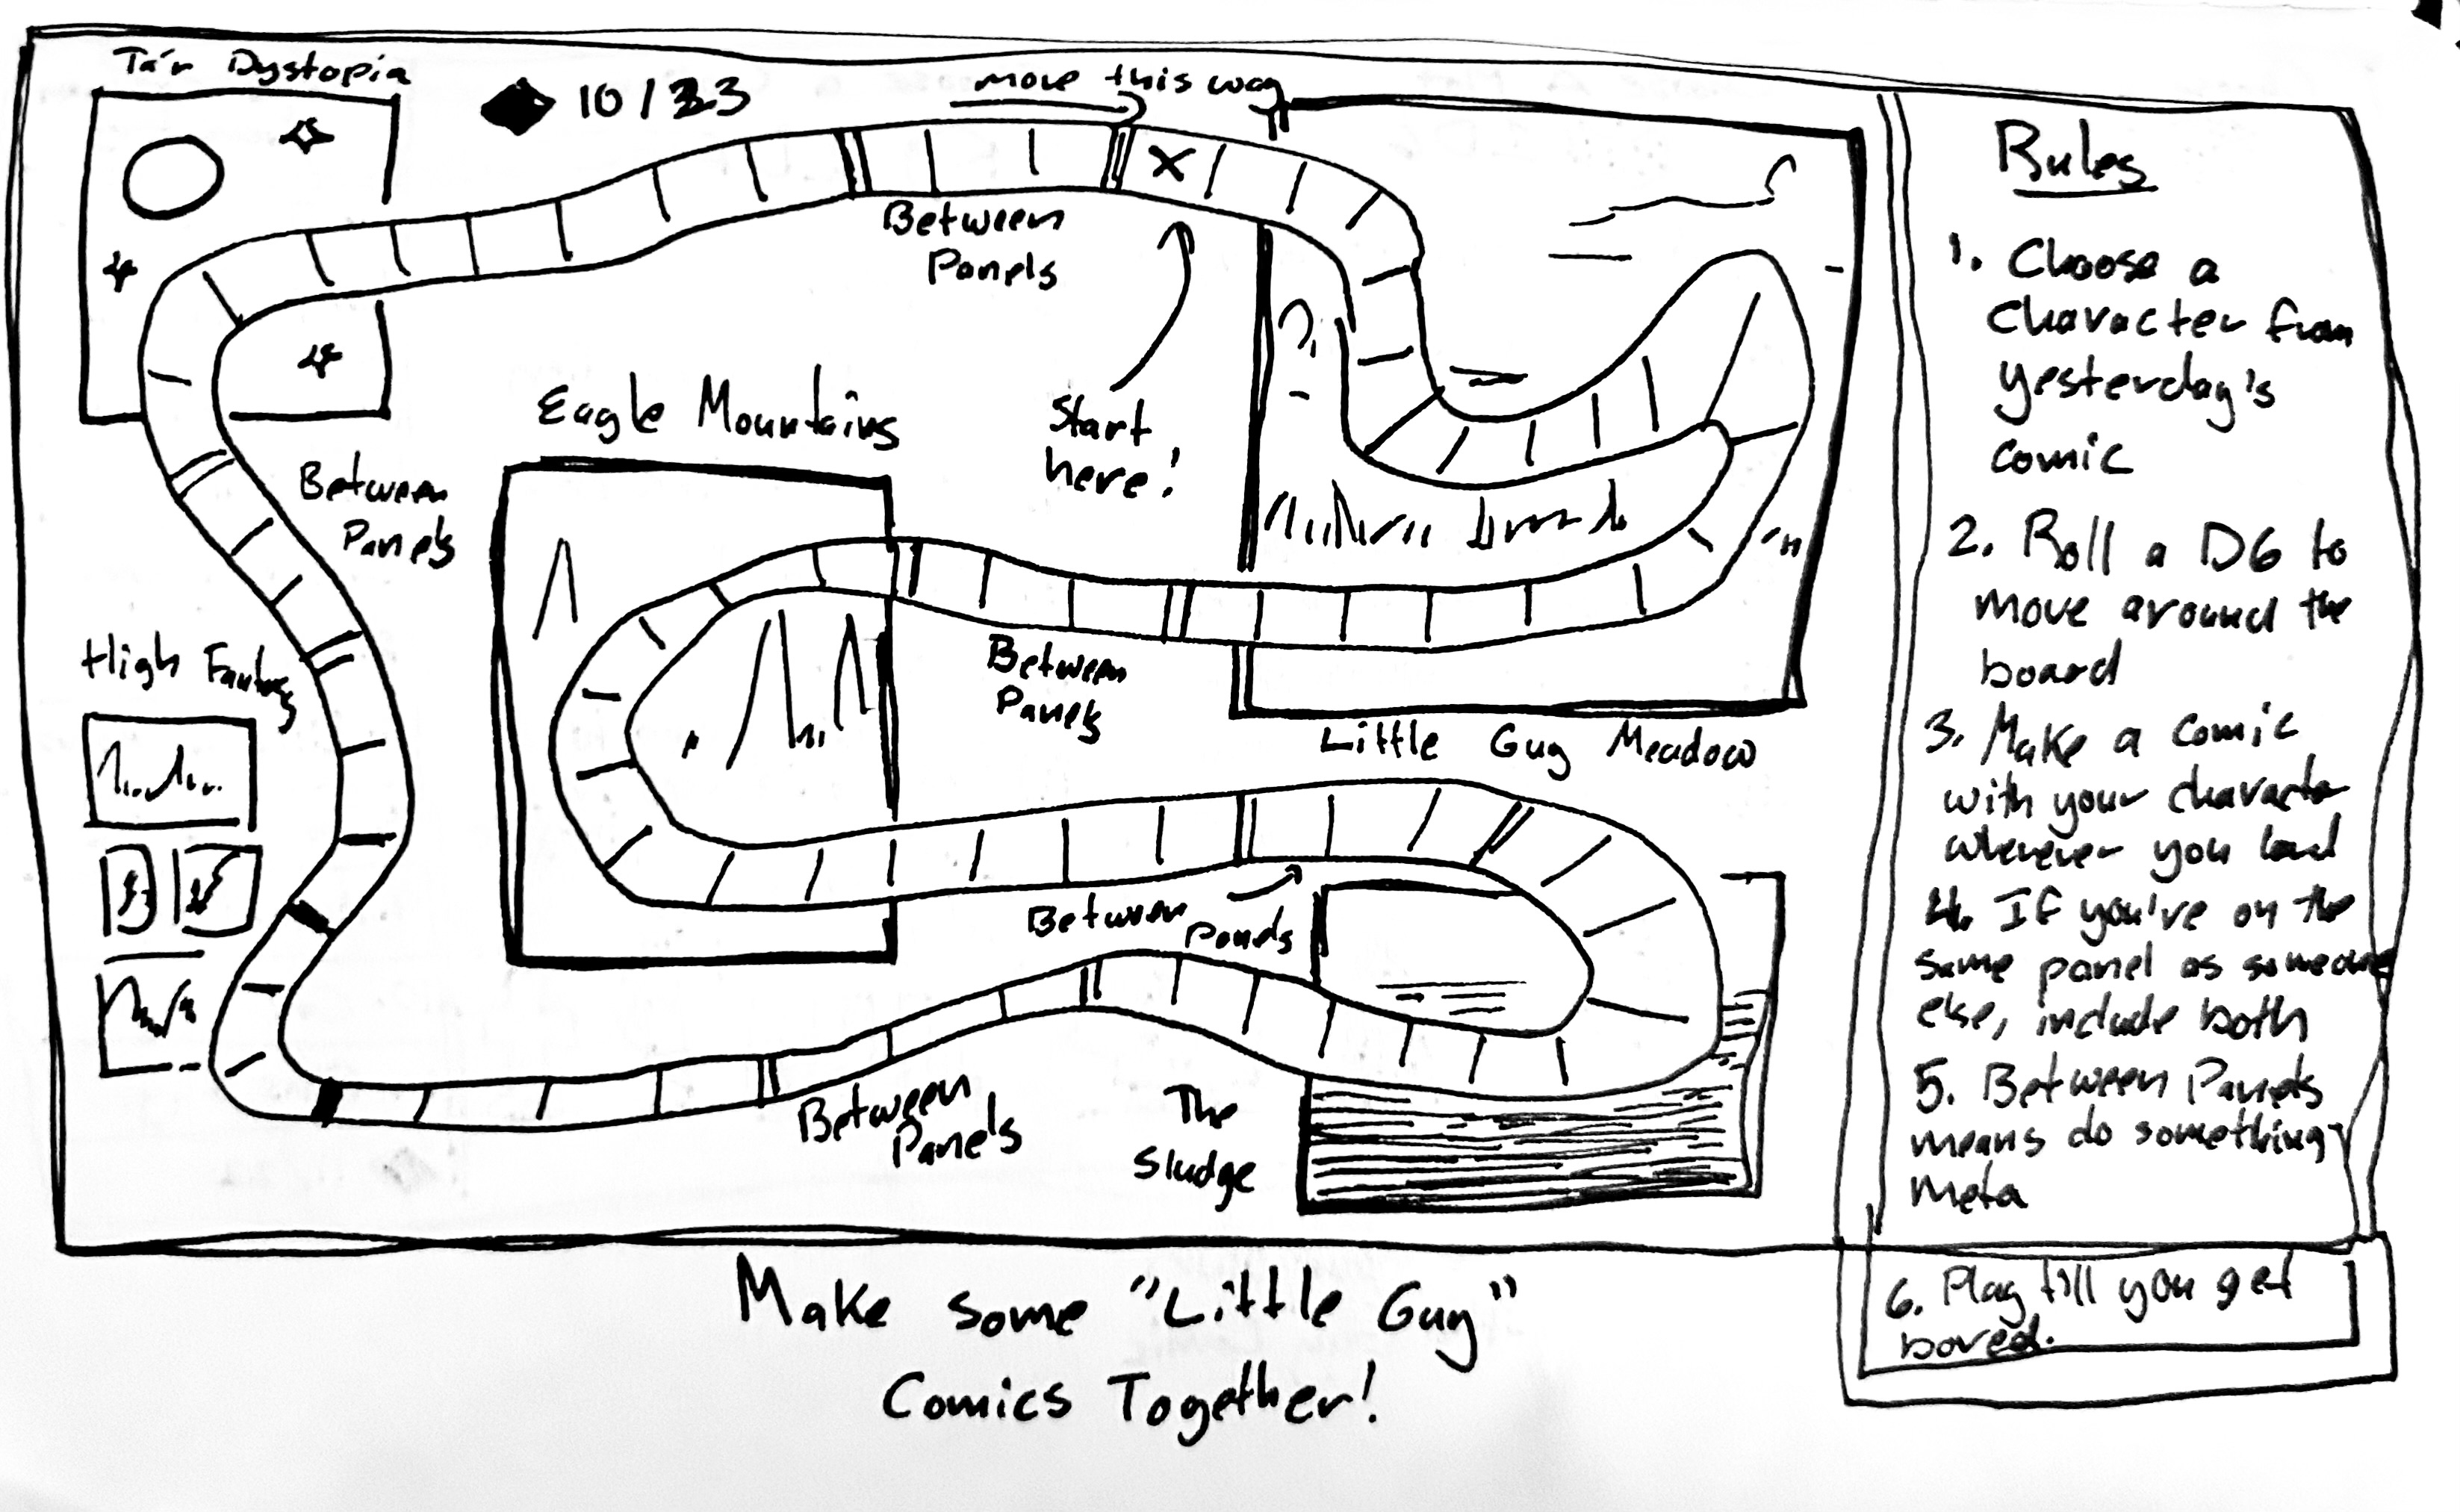 Ta'r Dystopia
10/23
move this way
Between
Panels
Start
here!
Eagle Mountains
Between
Panels
High Fantasy
Between
Panels
Little Guy Meadow
Between
Panels
Between
Panels
The
Sludge
Rules
1. Choose a
character from
yesterday's
comic
2. Roll a D6 to
move around the
board
3. Make a comic
with your character
wherever you land
4. If you're on the
same panel as someone
else, include both
5. Between Panels
means do something
meta
6. Play till you get
bored.
Make some "Little Guy"
Comics Together!